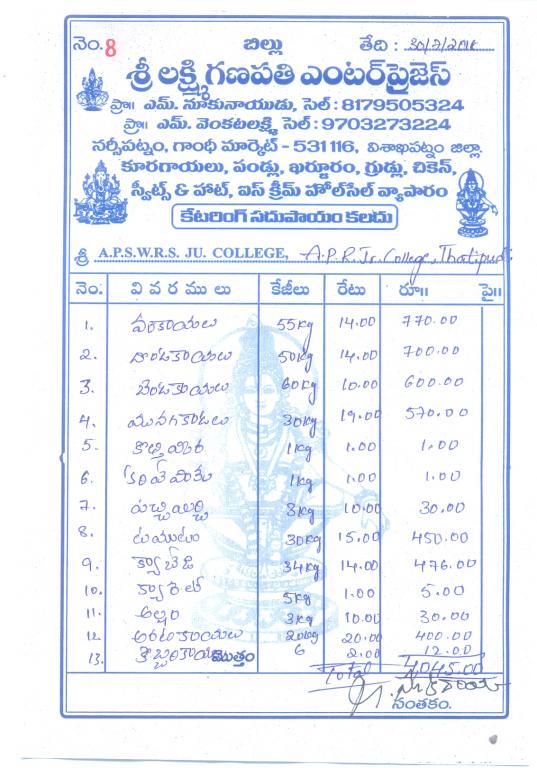 నెం. 8 బిల్లు తేది : 30/7/2018
శ్రీ లక్ష్మి గణపతి ఎంటర్‌ప్రైజెస్
ప్రొ॥ ఎమ్. నూకునాయుడు, సెల్ : 8179505324
ప్రొ॥ ఎమ్. వెంకటలక్ష్మి సెల్ : 9703273224
నర్సీపట్నం, గాంధీ మార్కెట్ - 531116, విశాఖపట్నం జిల్లా
కూరగాయలు, పండ్లు, ఖర్జూరం, గ్రుడ్లు, చికెన్,
స్వీట్స్ & హాట్, ఐస్ క్రీమ్ హోల్‌సేల్ వ్యాపారం
కేటరింగ్ సదుపాయం కలదు
శ్రీ A.P.S.W.R.S. JU. COLLEGE, A.P.R.Jr.College, Thatipudi
నెం. వివరములు కేజీలు రేటు రూ॥ పై॥
1. వంకాయలు 55kg 14.00 770.00
2. దొండకాయలు 50kg 14.00 700.00
3. బెండకాయలు 60kg 10.00 600.00
4. మునగకాడలు 30kg 19.00 570.00
5. కొత్తిమీర 1kg 1.00 1.00
6. కరివేపాకు 1kg 1.00 1.00
7. పచ్చిమిర్చి 3kg 10.00 30.00
8. టముటం 30kg 15.00 450.00
9. క్యాబేజి 34kg 14.00 476.00
10. క్యారెట్ 5kg 1.00 5.00
11. అల్లం 3kg 10.00 30.00
12. అరటికాయలు 20kg 20.00 400.00
13. కొబ్బరికాయ 6 2.00 12.00
మొత్తం Total 4,045.00
సంతకం.